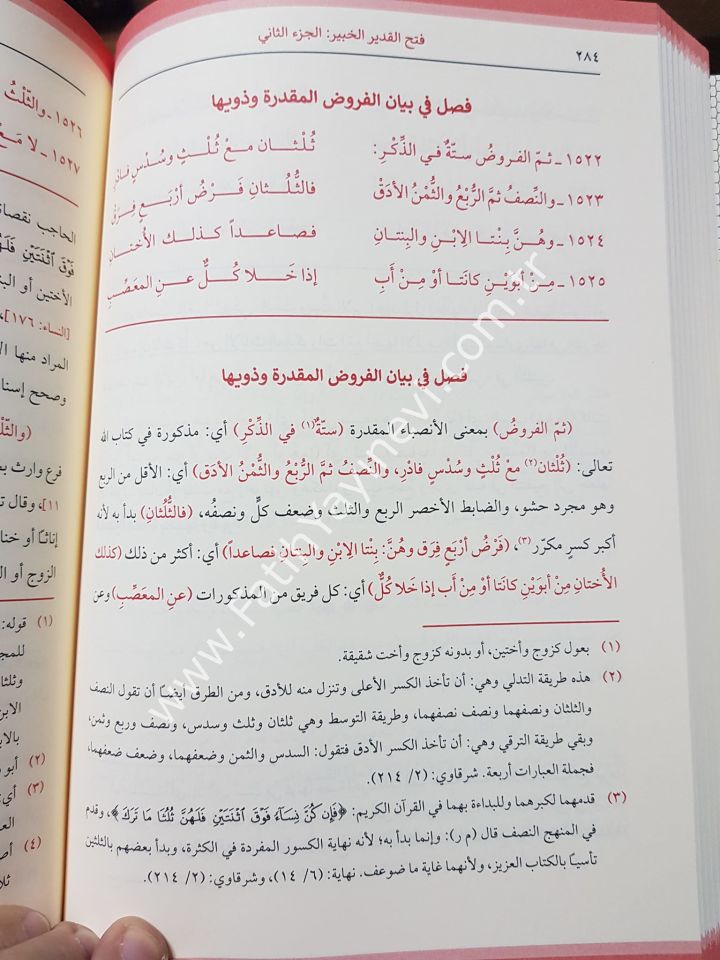 فتح القدير الخبير: الجزء الثاني
٢٨٤
فصل في بيان الفروض المقدرة وذويها
١٥٢٢ ـ ثمّ الفروضُ ستةٌ في الذِّكْرِ: ثُلْثان معْ ثُلْثٍ وسُدْسٍ فادْرِ
١٥٢٣ ـ والنِّصفُ ثمّ الرُّبْعُ والثُّمْنُ الأدَقْ فالثُّلُثانِ فَرْضُ أرْبَعٍ فِرَقْ
١٥٢٤ ـ وهُنَّ بِنْتا الاِبْنِ والبِنتانِ فصاعداً كذلك الأُختانِ
١٥٢٥ ـ مِنْ أبوَيْنِ كانَتا أوْ مِنْ أَبِ إذا خَلا كُلٌّ عنِ المعَصِّبِ
فصل في بيان الفروض المقدرة وذويها
(ثمّ الفروضُ) بمعنى الأنصباء المقدرة (ستةٌ(١) في الذِّكْرِ) أي: مذكورة في كتاب الله
تعالى: (ثُلْثان(٢) معْ ثُلْثٍ وسُدْسٍ فادْرِ، والنِّصف ثمّ الرُّبْعُ والثُّمْنُ الأدَق) أي: الأقل من الربع
وهو مجرد حشو، والضابط الأخصر الربع والثلث وضعف كلٍّ ونصفُه، (فالثُّلُثانِ) بدأ به لأنه
أكبر كسرٍ مكرّر(٣)، (فَرْضُ أرْبَعٍ فِرَقٍ وهُنَّ: بِنْتا الاِبْنِ والبِنتانِ فصاعداً) أي: أكثر من ذلك (كذلك
الأُختان مِنْ أبوَيْنِ كانَتا أوْ مِنْ أب إذا خَلا كُلٌّ) أي: كل فريق من المذكورات (عنِ المعَصِّبِ) وعن
(١) بعول كزوج وأختين، أو بدونه كزوج وأخت شقيقة.
(٢) هذه طريقة التدلي وهي: أن تأخذ الكسر الأعلى وتنزل منه للأدق، ومن الطرق أيضاً أن تقول النصف
والثلثان ونصفهما ونصف نصفهما، وطريقة التوسط وهي ثلثان وثلث وسدس، ونصف وربع وثمن،
وبقي طريقة الترقي وهي: أن تأخذ الكسر الأدق فتقول: السدس والثمن وضعفهما، وضعف ضعفهما،
فجملة العبارات أربعة. شرقاوي: (٢/ ٢١٤).
(٣) قدمهما لكبرهما وللبداءة بهما في القرآن الكريم: ﴿فَإِن كُنَّ نِسَآءً فَوْقَ ٱثْنَتَيْنِ فَلَهُنَّ ثُلُثَا مَا تَرَكَ﴾، وقدم
في المنهج النصف قال (م ر): وإنما بدأ به؛ لأنه نهاية الكسور المفردة في الكثرة، وبدأ بعضهم بالثلثين
تأسياً بالكتاب العزيز، ولأنهما غاية ما ضوعف. نهاية: (٦/ ١٤)، وشرقاوي: (٢/ ٢١٤).
١٥٢٦ ـ والثُّلْثُ
١٥٢٧ ـ لا مَعْ
الحاجب نقصا
فَوْقَ ٱثْنَتَيْنِ فَلَهُ
الأختين أو الب
[النساء: ١٧٦]،
المراد منها الا
وصحح إسنا
(والثُّلْ
فرع وارث ب
١١]، وقال ت
إناثاً أو خنا
الزوج أو ال
(١) قوله:
للمج
وثلثا
الابن
بالاب
(٢) أبو
(٣) أي:
الع
(٤) أص
ثلا
www.FatihYayinevi.com.tr